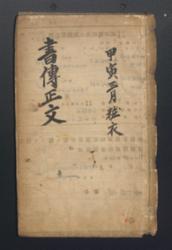 書傳正文
甲寅二月粧衣